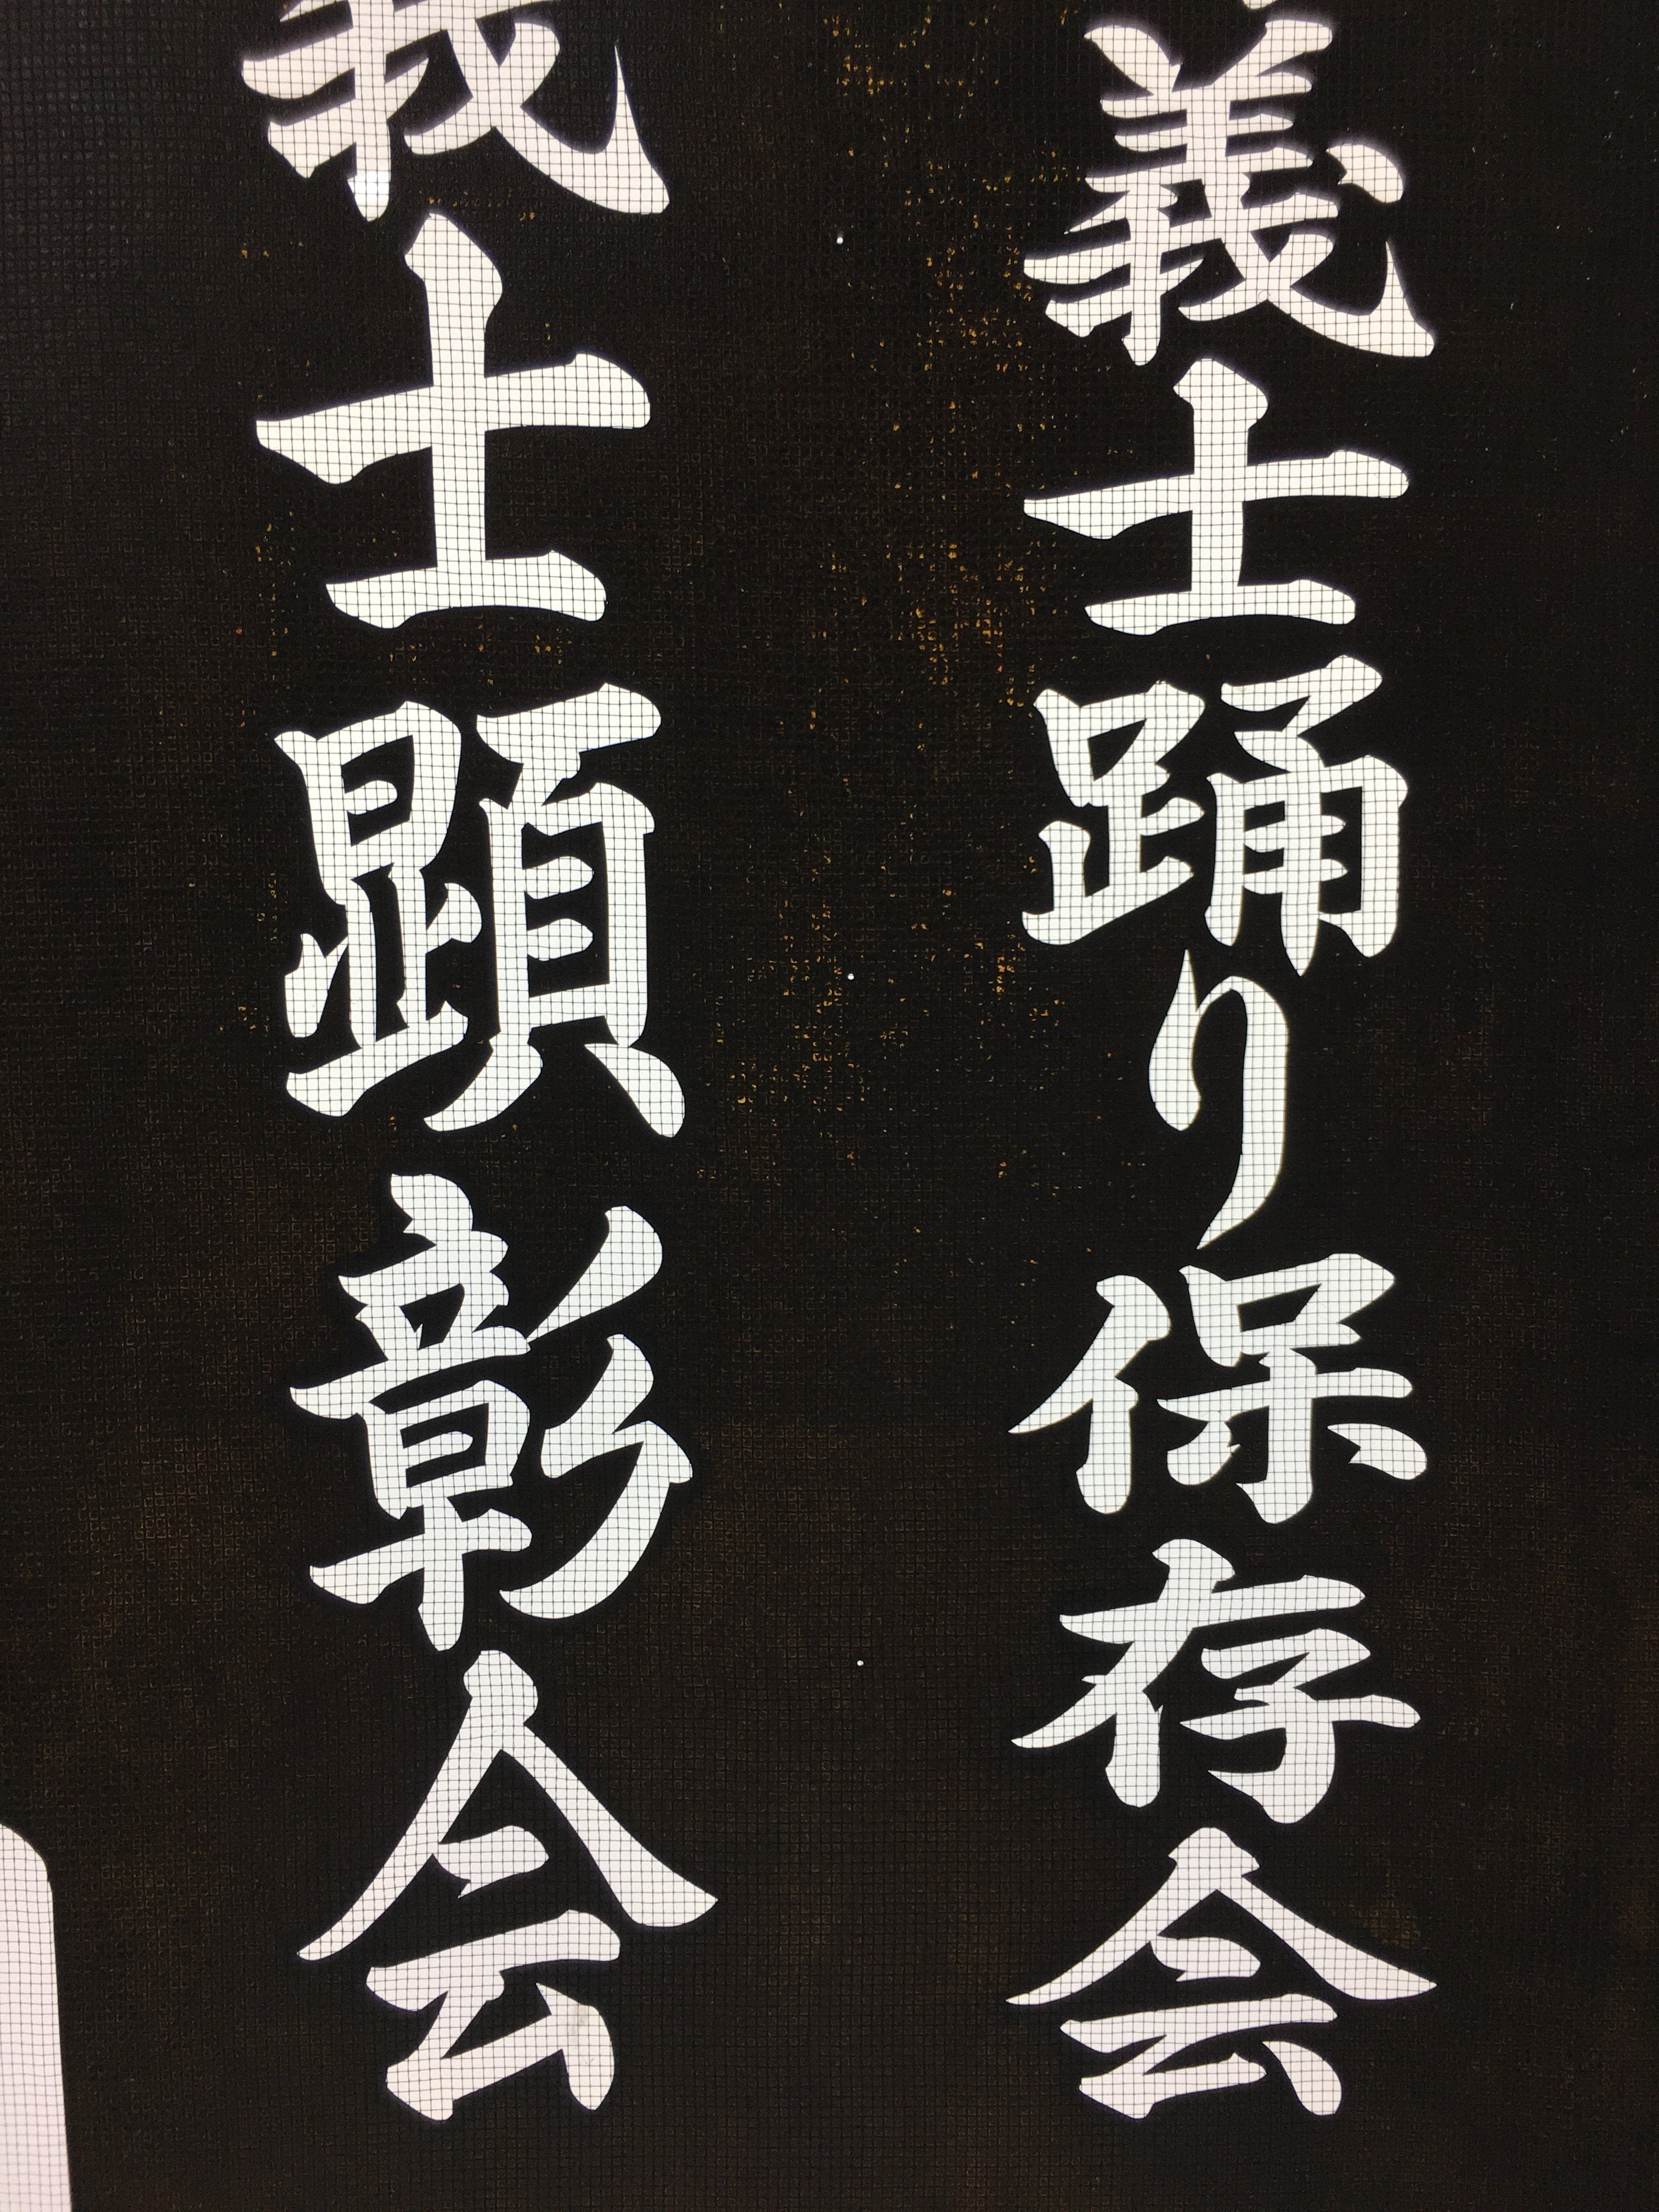 義士踊り保存会
義士顕彰会